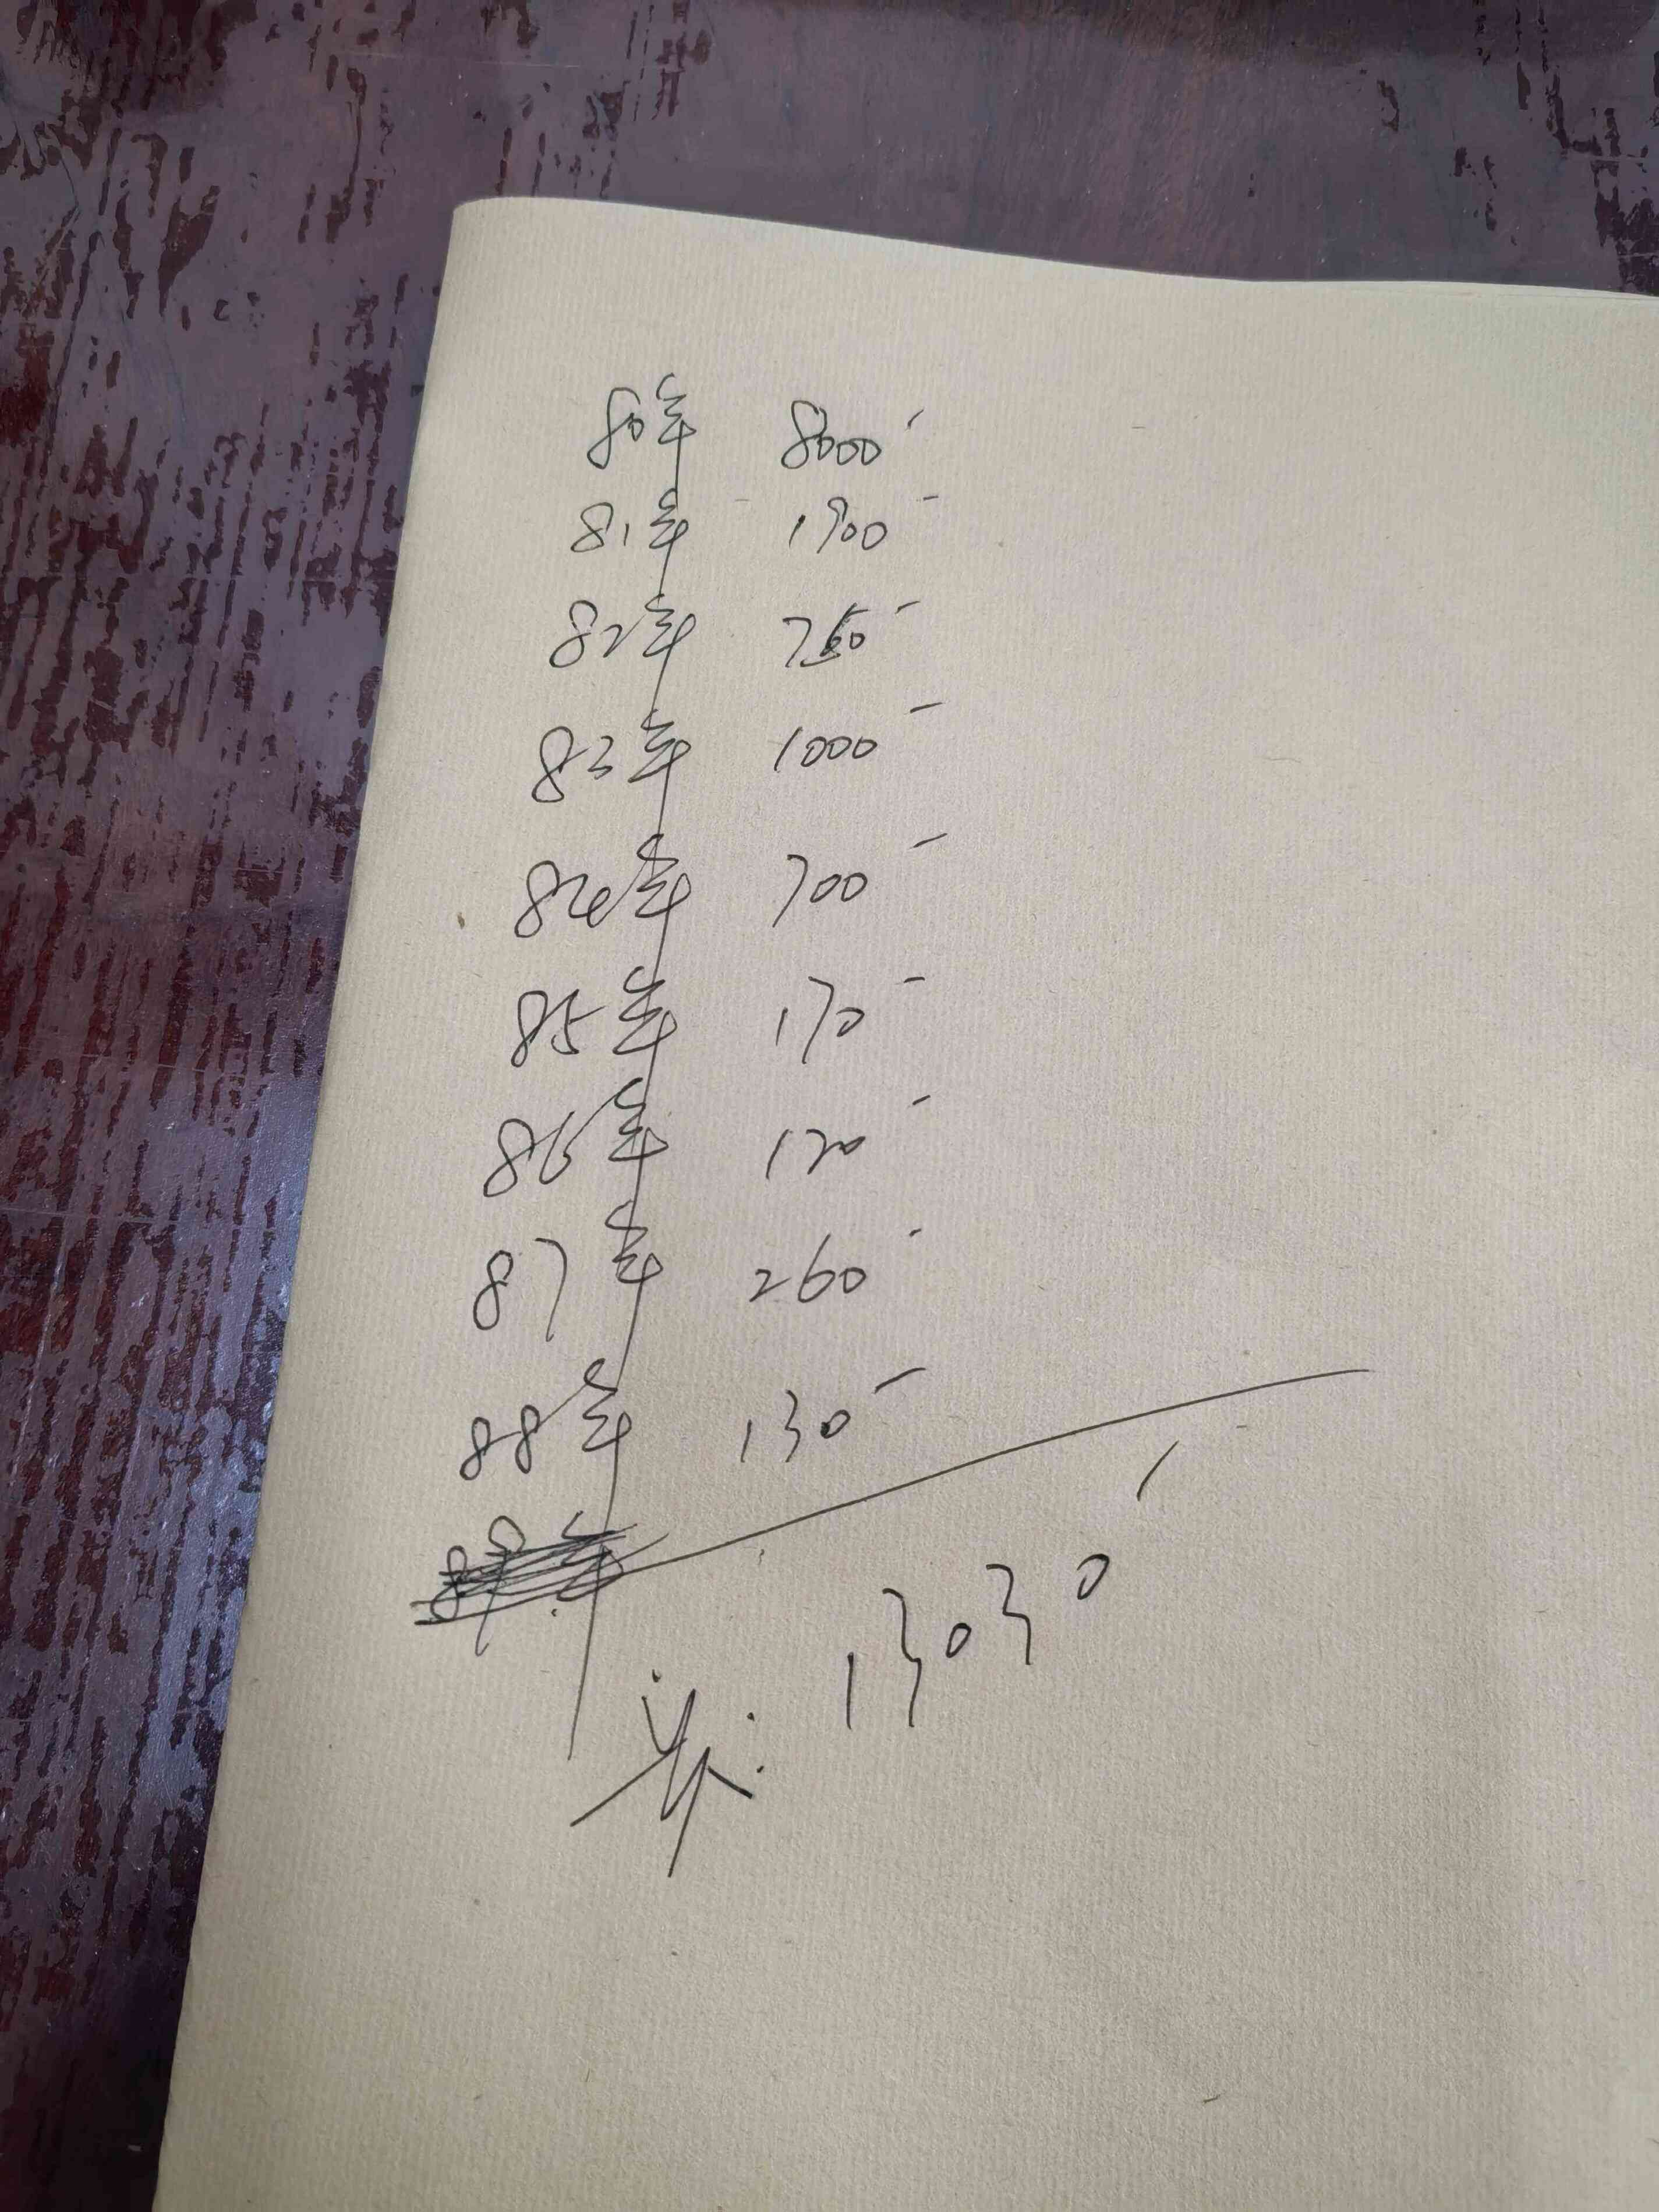 80年 8000
81年 1900
82年 750
83年 1000
84年 700
85年 170
86年 120
87年 260
88年 130
共: 13030